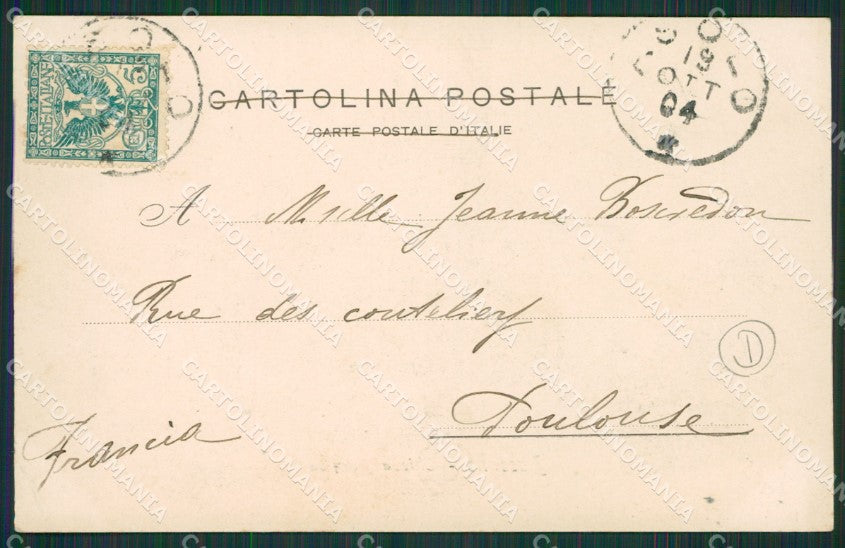 CARTOLINA POSTALE
CARTE POSTALE D'ITALIE
19
OTT
04
A Mselle Jeanne Boscredon
Rue des couteliers
Toulouse
Francia
D
CARTOLINOMANIA